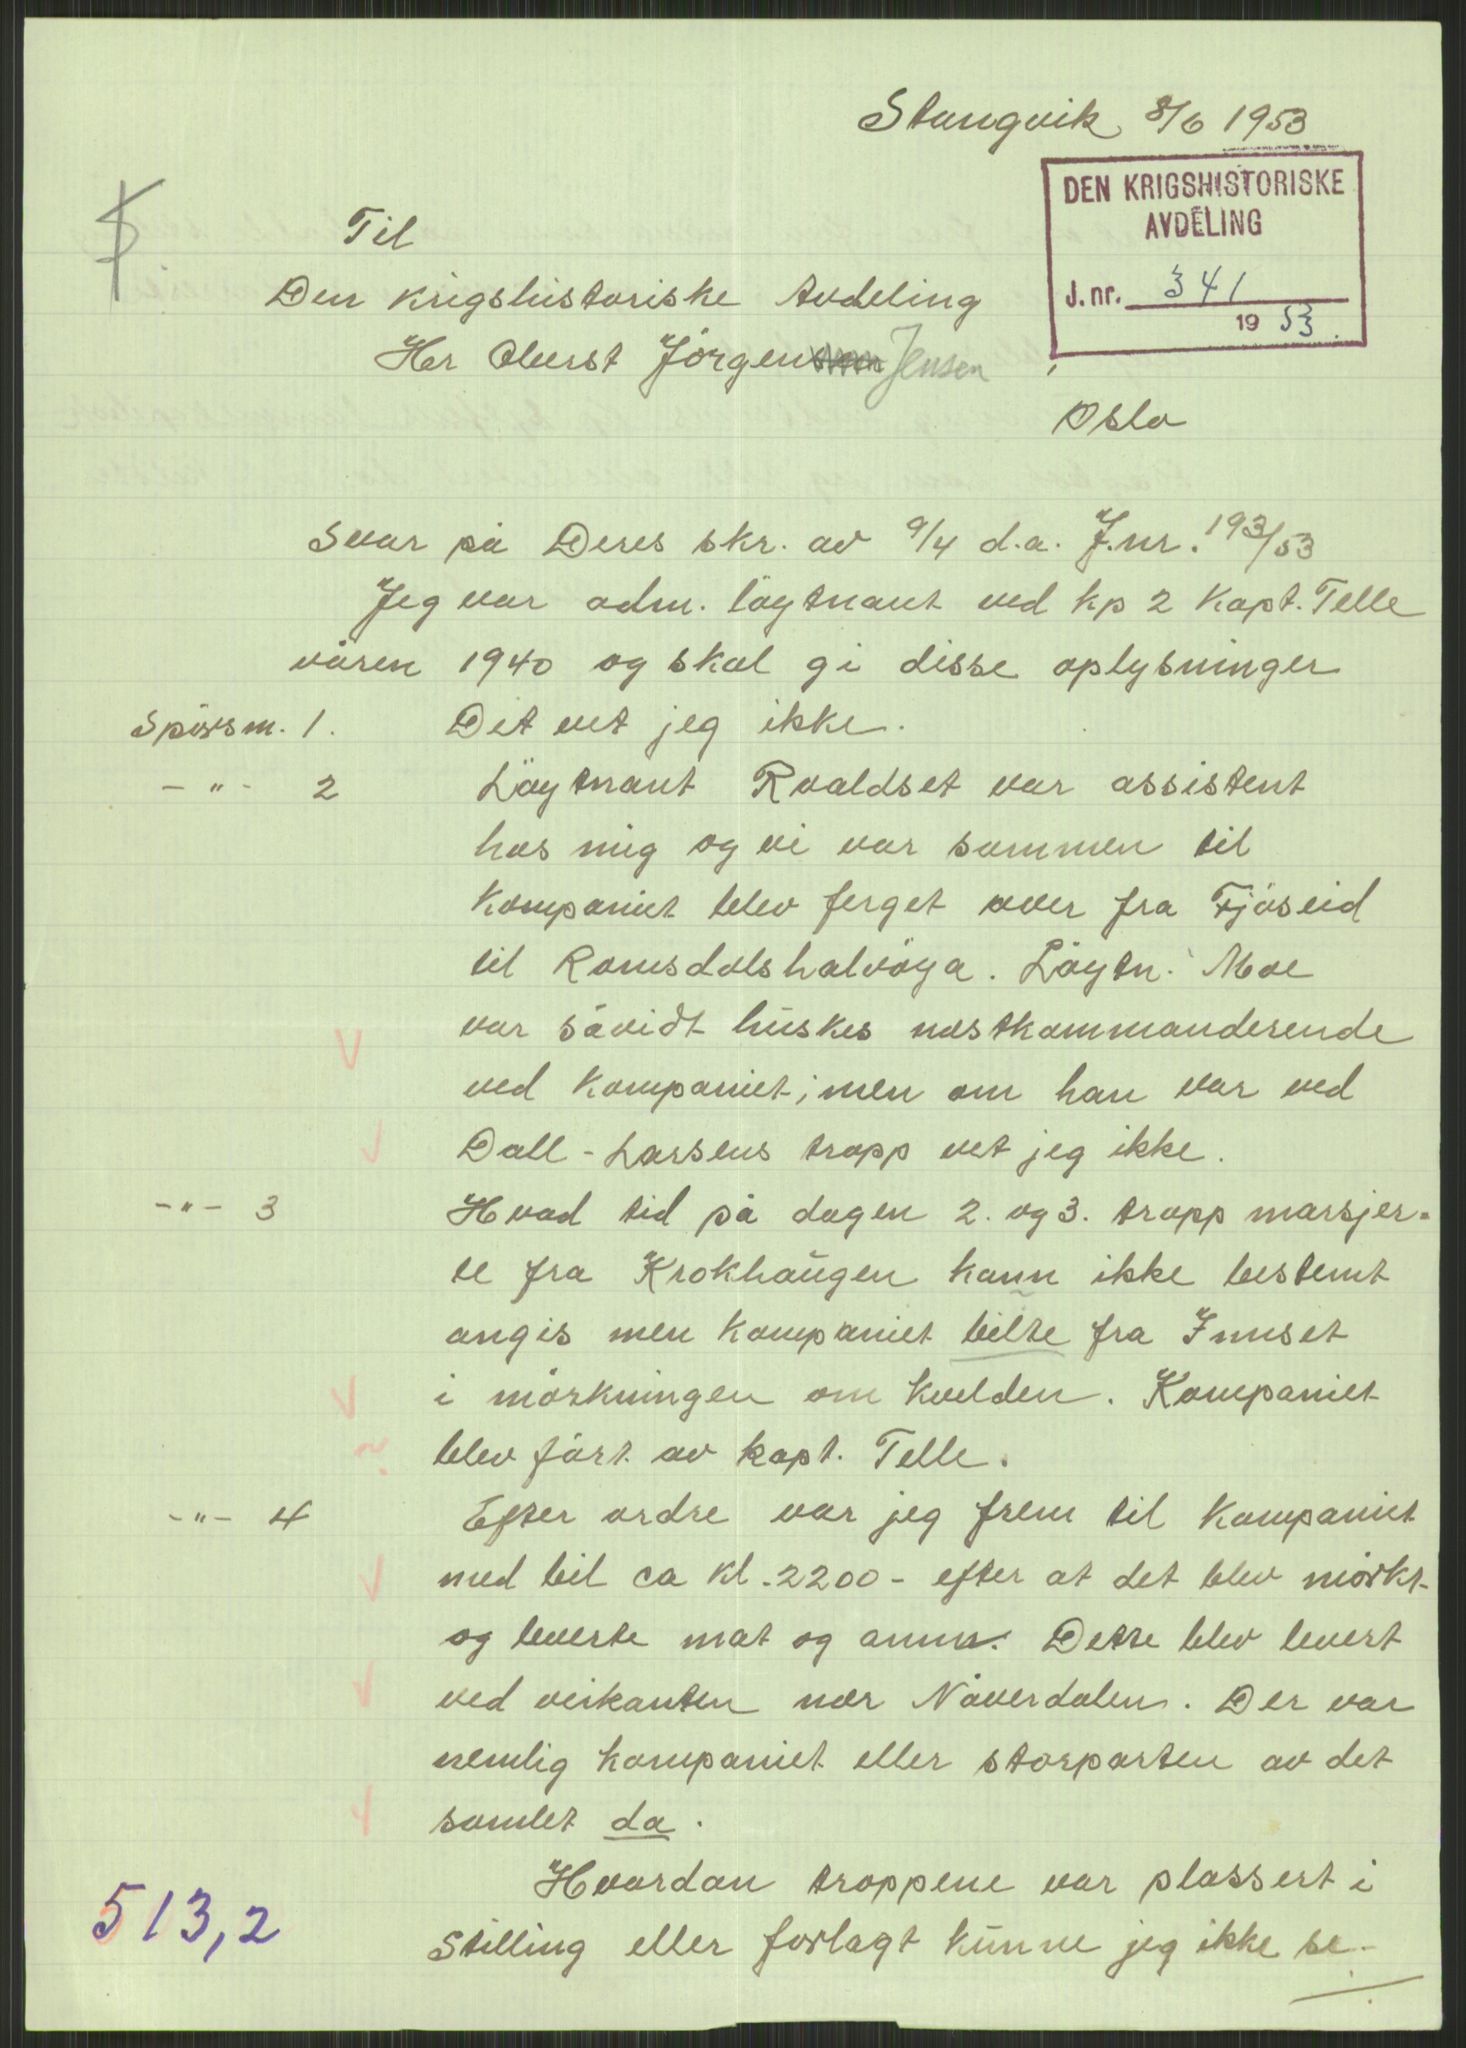 Stangvik 8/6 1953
DEN KRIGSHISTORISKE
AVDELING
J.nr. 341
1953.
Til
Den krigshistoriske Avdeling
Her Oberst Jörgen Jensen
Oslo
Svar på Deres skr. av 9/4 d.a. J.nr. 193/53
Jeg var adm. löytnant ved kp 2 Kapt. Telle
våren 1940 og skal gi disse oplysninger
Spörsm. 1. Det vet jeg ikke.
-"- 2 Löytnant Roaldset var assistent
hos mig og vi var sammen til
kompaniet blev ferget over fra Fjöseid
til Romsdalshalvöya. Löytn. Moe
var såvidt huskes nestkommanderende
ved kompaniet; men om han var ved
Dall-Larsens tropp vet jeg ikke.
-"- 3 Hvad tid på dagen 2. og 3. tropp marsjer-
te fra Krokhaugen kann ikke bestemt
angis men kompaniet bilte fra Innset
i mörkningen om kvelden. Kompaniet
blev fört av kapt. Telle.
-"- 4 Efter ordre var jeg frem til kompaniet
med bil ca kl. 2200 - efter at det blev mörkt -
og leverte mat og amm. Dette blev levert
ved veikanten nær Nåverdalen. Der var
nemlig kompaniet eller storparten av det
samlet da.
Hvordan troppene var plassert i
stilling eller forlagt kunne jeg ikke se.
513,2